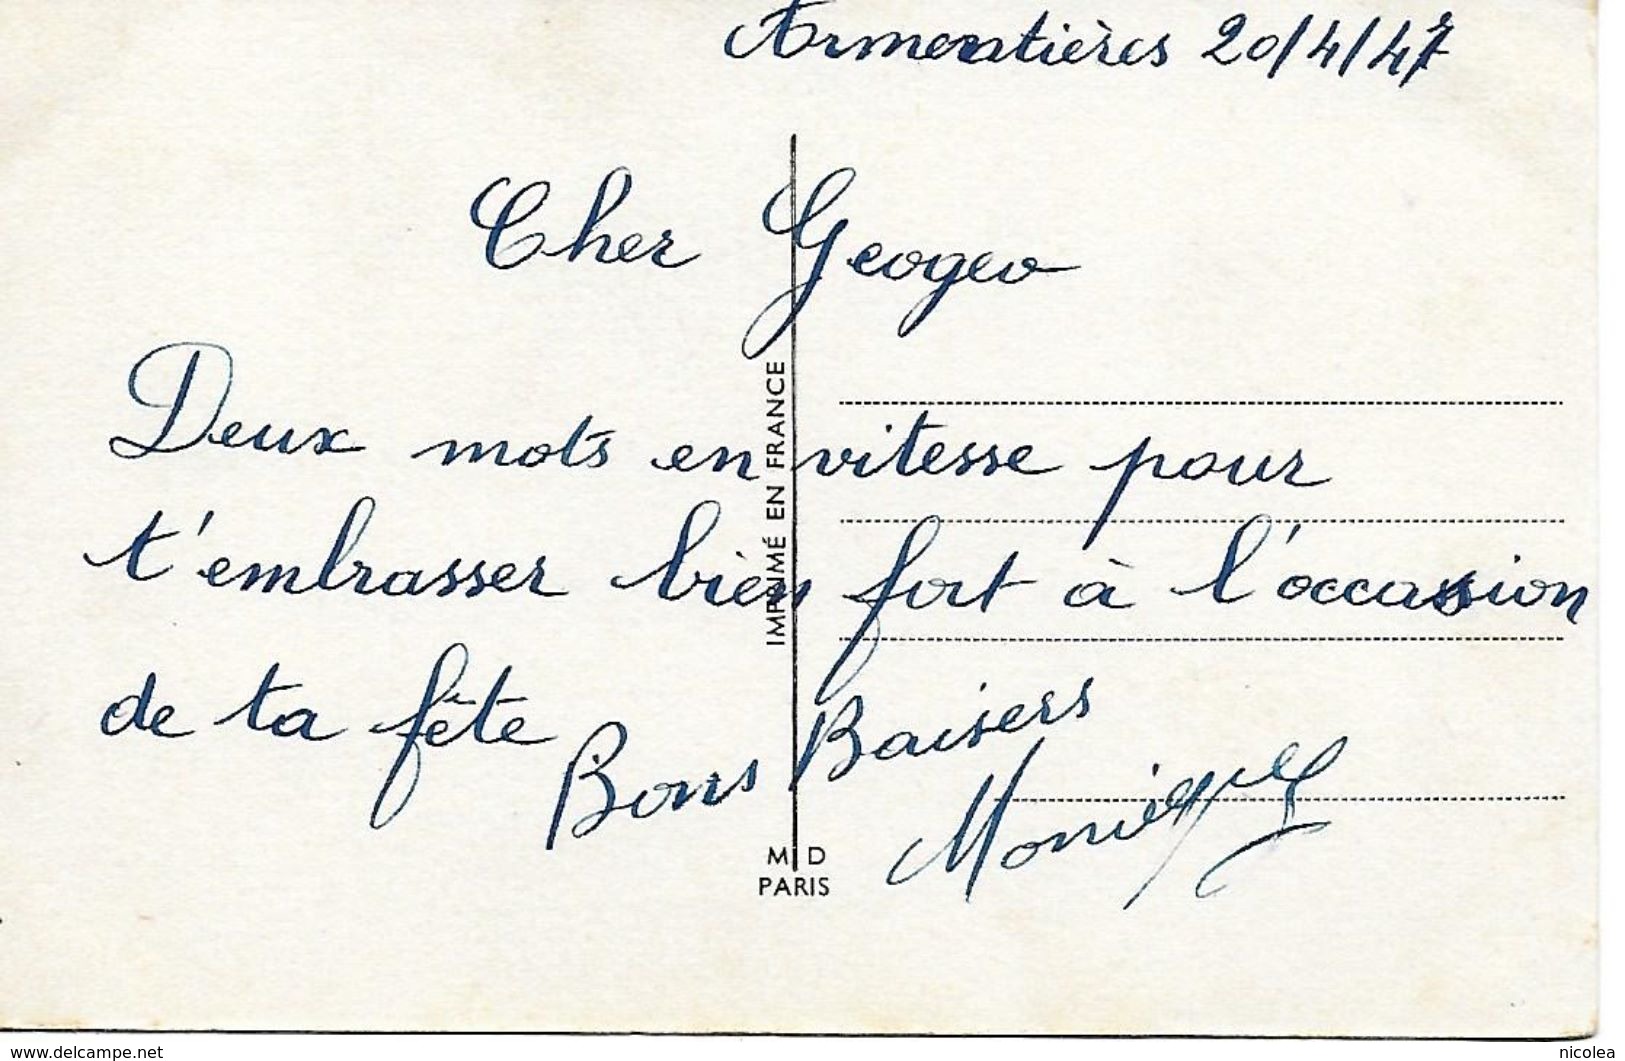 Armentières 20/4/47
Cher Geogeo
Deux mots en vitesse pour
t'embrasser bien fort à l'occasion
de ta fête
Bons Baisers
Monique
IMPRIMÉ EN FRANCE
M D
PARIS
www.delcampe.net
nicolea